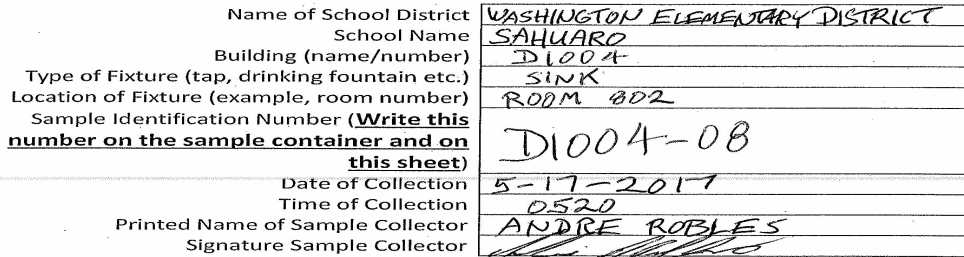 Name of School District WASHINGTON ELEMENTARY DISTRICT
School Name SAHUARO
Building (name/number) D1004
Type of Fixture (tap, drinking fountain etc.) SINK
Location of Fixture (example, room number) ROOM 802
Sample Identification Number (Write this
number on the sample container and on
this sheet) D1004-08
Date of Collection 5-17-2017
Time of Collection 0520
Printed Name of Sample Collector ANDRE ROBLES
Signature Sample Collector